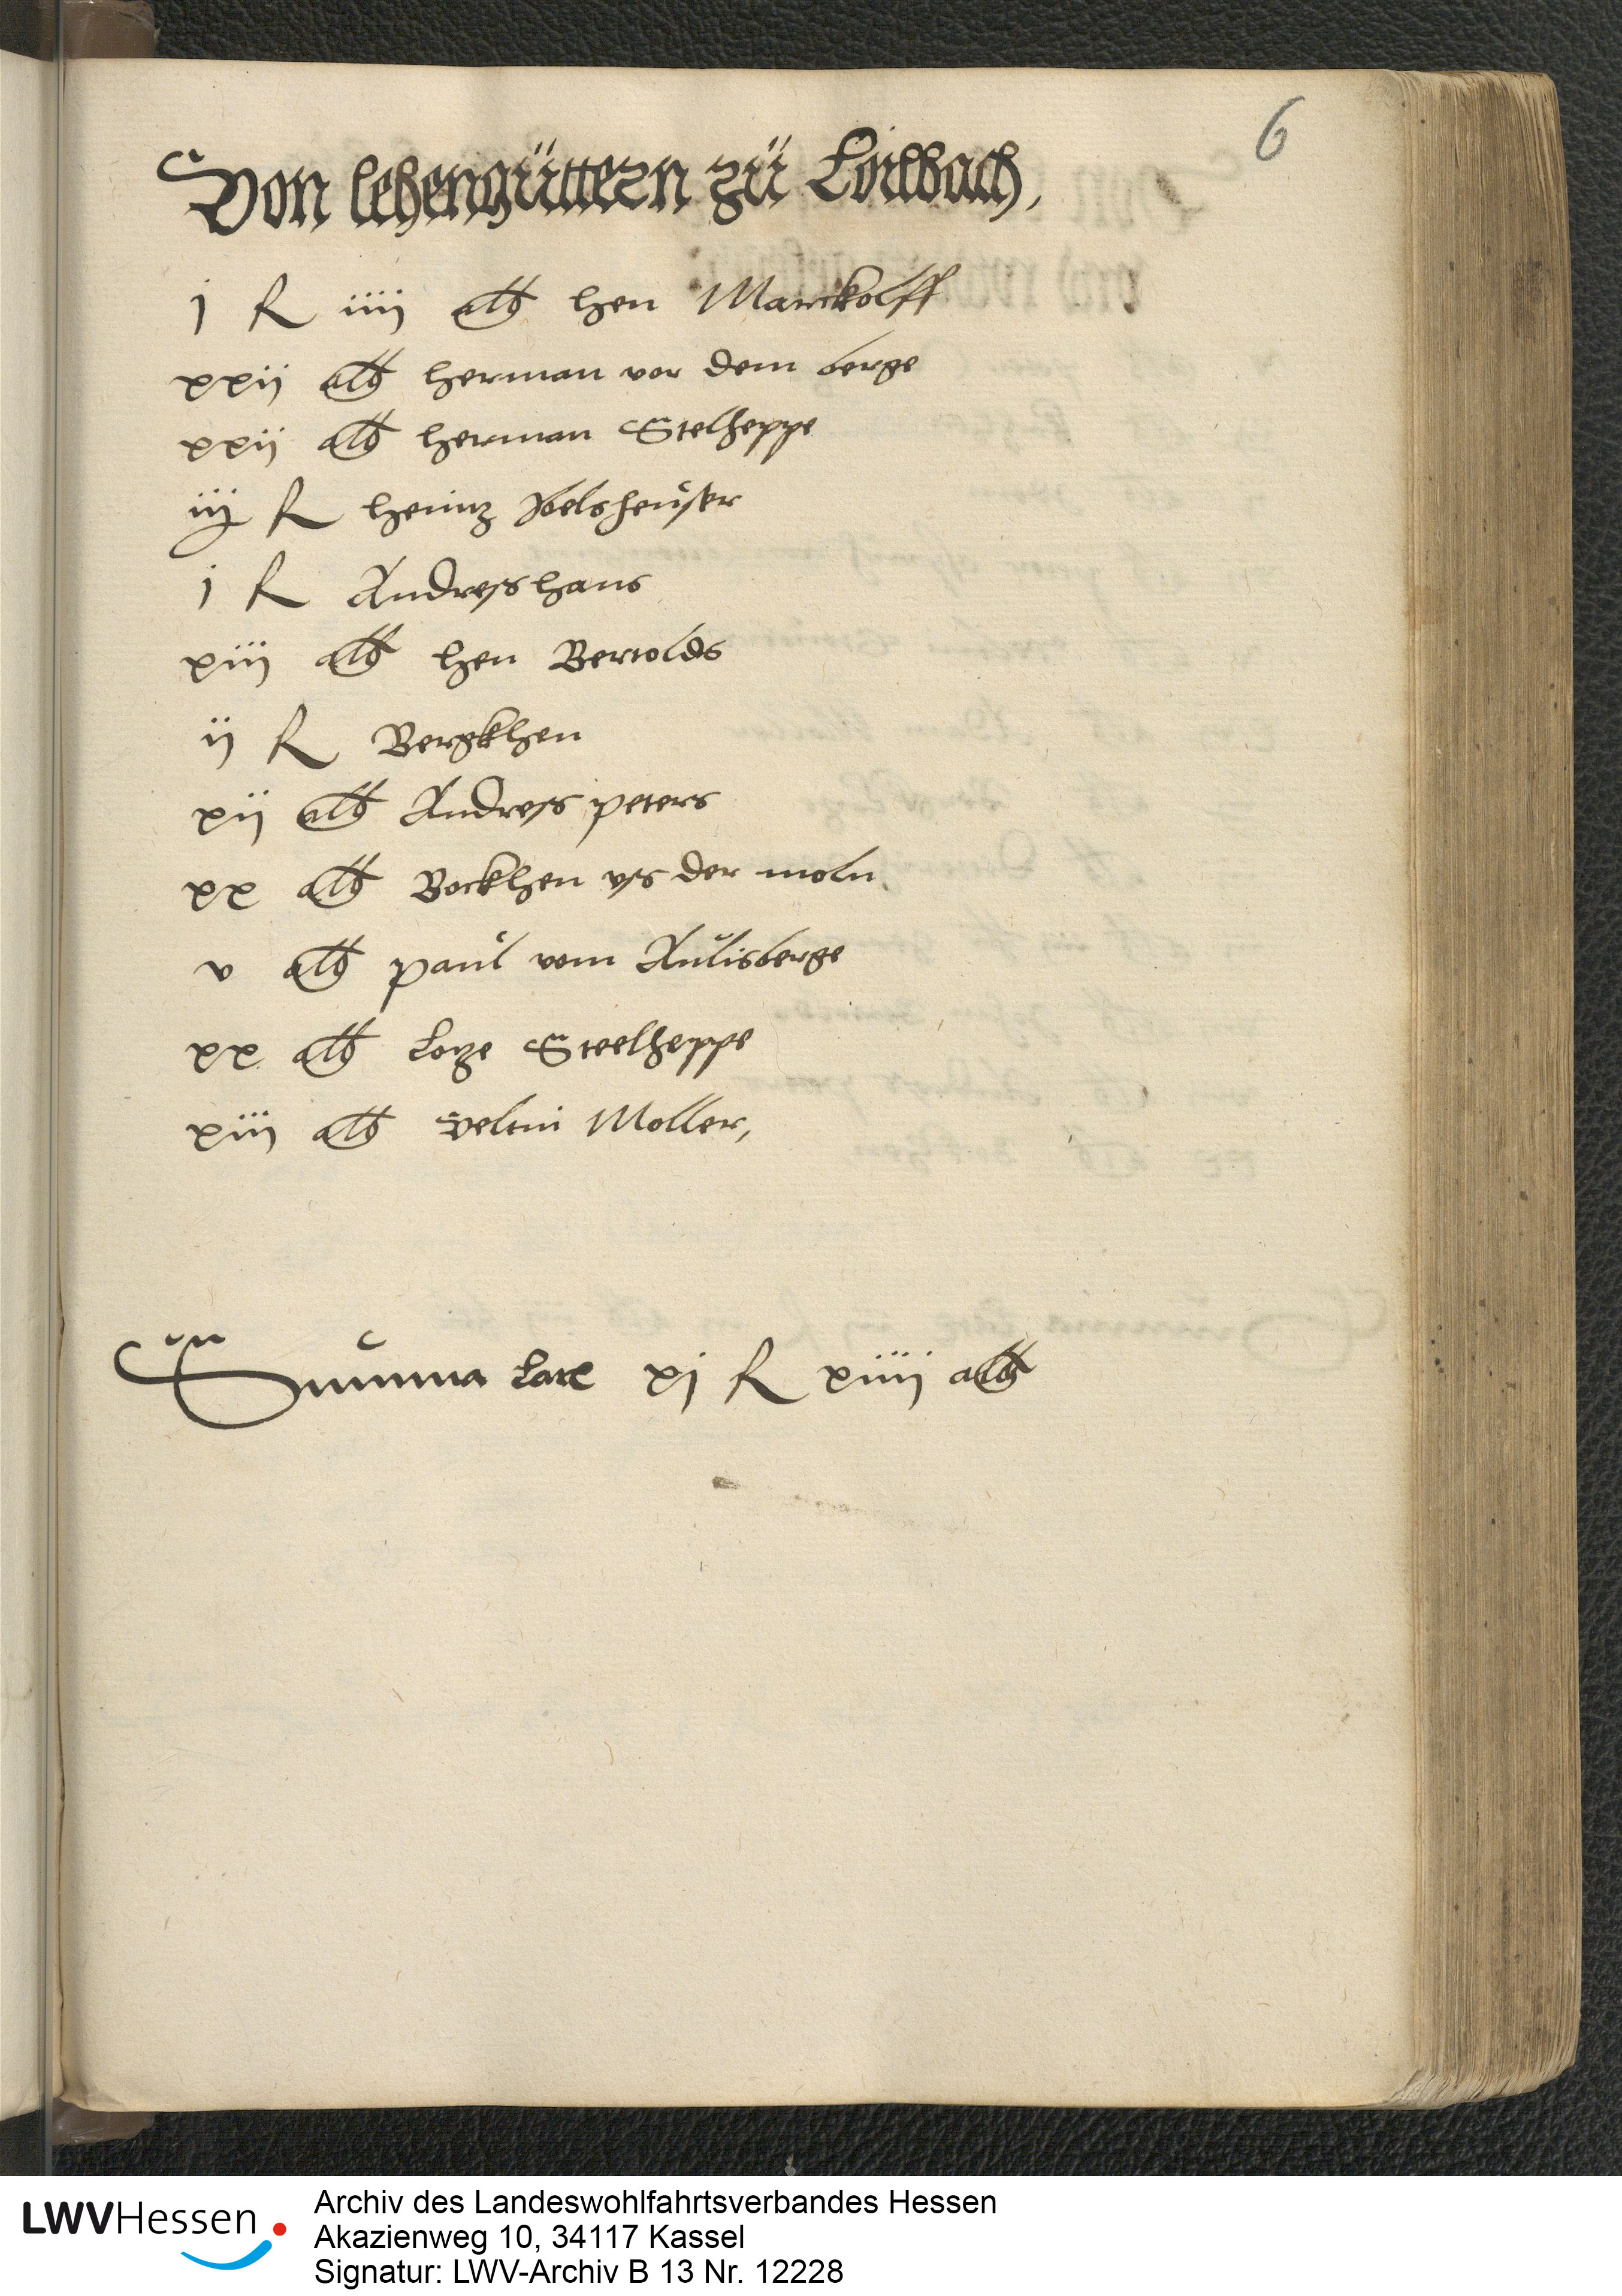 6
Von lehengüttern zü Loilbach,
j fl iiij alb hen Marckolff
xxij alb herman vor dem berge
xxij alb herman Stelheppe
iij fl heintz
j fl Andreßhans
xiij alb hen Bertolds
ij fl Bergkhen
xij alb Andreß peters
xx alb Bockhen vß der moln
v alb paŭl vom Aŭlisberge
xx alb Lotze Steelheppe
xiij alb veltin Moller,
Sŭmma Late xj fl xiiij alb
LWVHessen
Archiv des Landeswohlfahrtsverbandes Hessen
Akazienweg 10, 34117 Kassel
Signatur: LWV-Archiv B 13 Nr. 12228